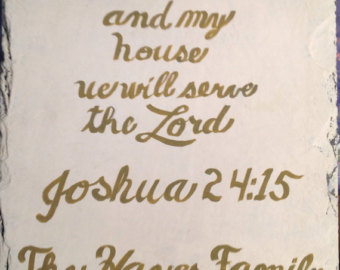 and my
house
we will serve
the Lord
Joshua 24:15
The Hayes Family